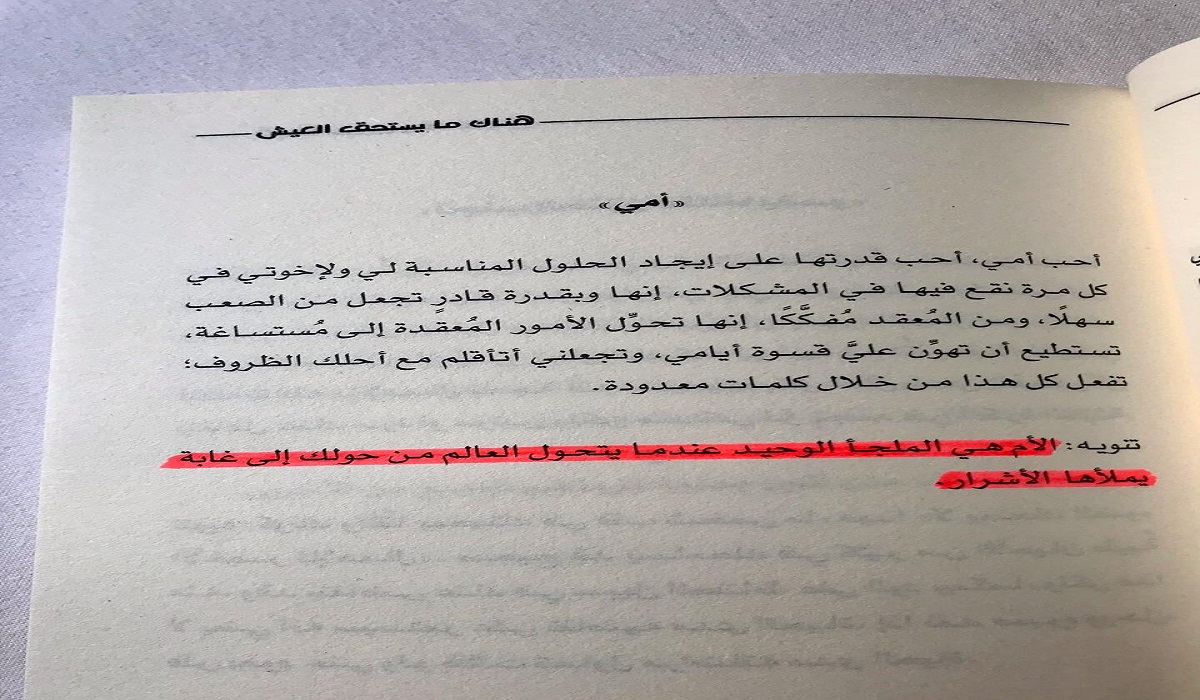 هناك ما يستحق العيش
«أمي»
أحب أمي، أحب قدرتها على إيجاد الحلول المناسبة لي ولإخوتي في
كل مرة نقع فيها في المشكلات، إنها وبقدرة قادرٍ تجعل من الصعب
سهلًا، ومن المُعقد مُفكَّكًا، إنها تحوِّل الأمور المُعقدة إلى مُستساغة،
تستطيع أن تهوِّن عليَّ قسوة أيامي، وتجعلني أتأقلم مع أحلك الظروف؛
تفعل كل هذا من خلال كلمات معدودة.
تنويه: الأم هي الملجأ الوحيد عندما يتحول العالم من حولك إلى غابة
يملأها الأشرار.